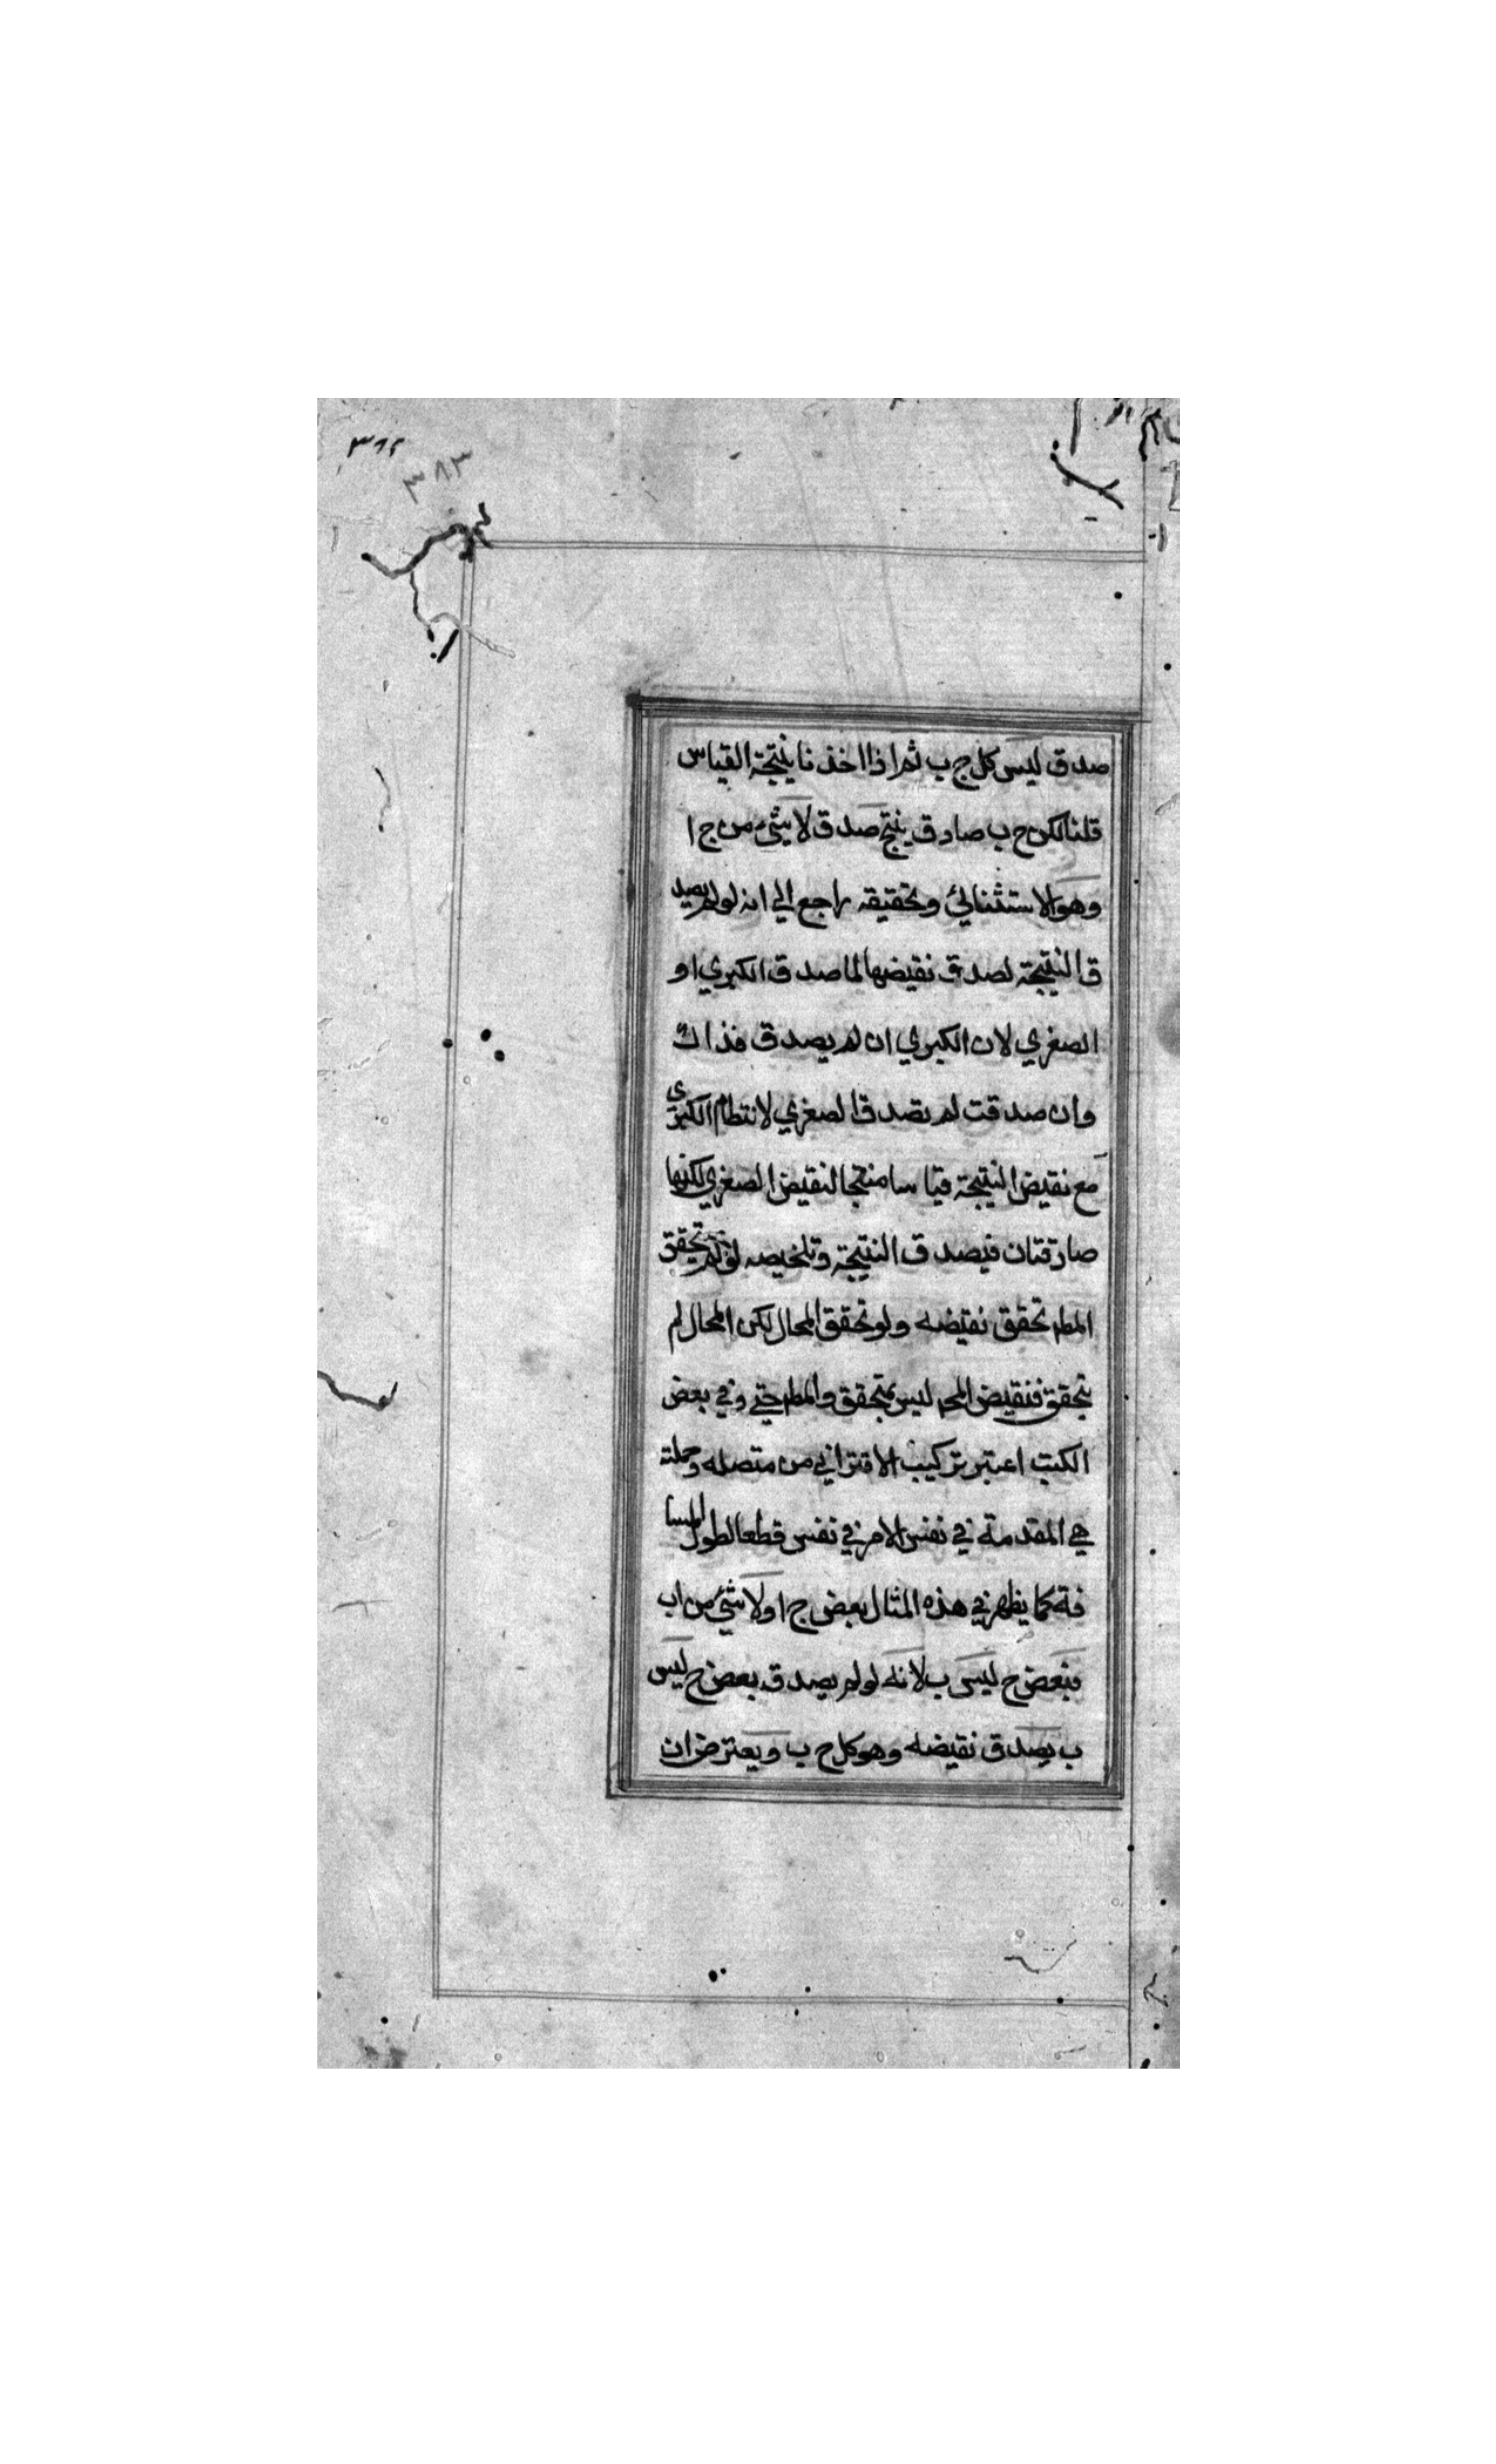 ٣٦٢
٣٨٣
صدق ليس كل ج ب ثم اذا اخذنا نتيجة القياس
قلنا لكن ج ب صادق ينتج صدق لا شئ من ج ا
وهو الاستثنائي وتحقيقه راجع الي انه لو لم يصد
ق النتيجة لصدق نقيضها لما صدق الكبري او
الصغري لان الكبري ان لم يصدق فذاك
وان صدقت لم تصدق الصغري لانتظام الكبري
مع نقيض النتيجة قياسا منتجا لنقيض الصغري لكنها
صادقتان فيصدق النتيجة وتلخيصه لو لم يتحقق
المط تحقق نقيضه ولو تحقق المحال لكن المحال لم
يتحقق فنقيض المح ليس بمتحقق والمط حتي وفي بعض
الكتب اعتبر تركيب الاقتراني من متصله وحملية
هي المقدمة في نفس الامر في نفس قطعا لطول المسا
فة كما يظهر في هذه المثال بعض ج ا ولا شئ من اب
فبعض ج ليس ب لانه لو لم يصدق بعض ج ليس
ب يصدق نقيضه وهو كل ج ب ويعترض ان